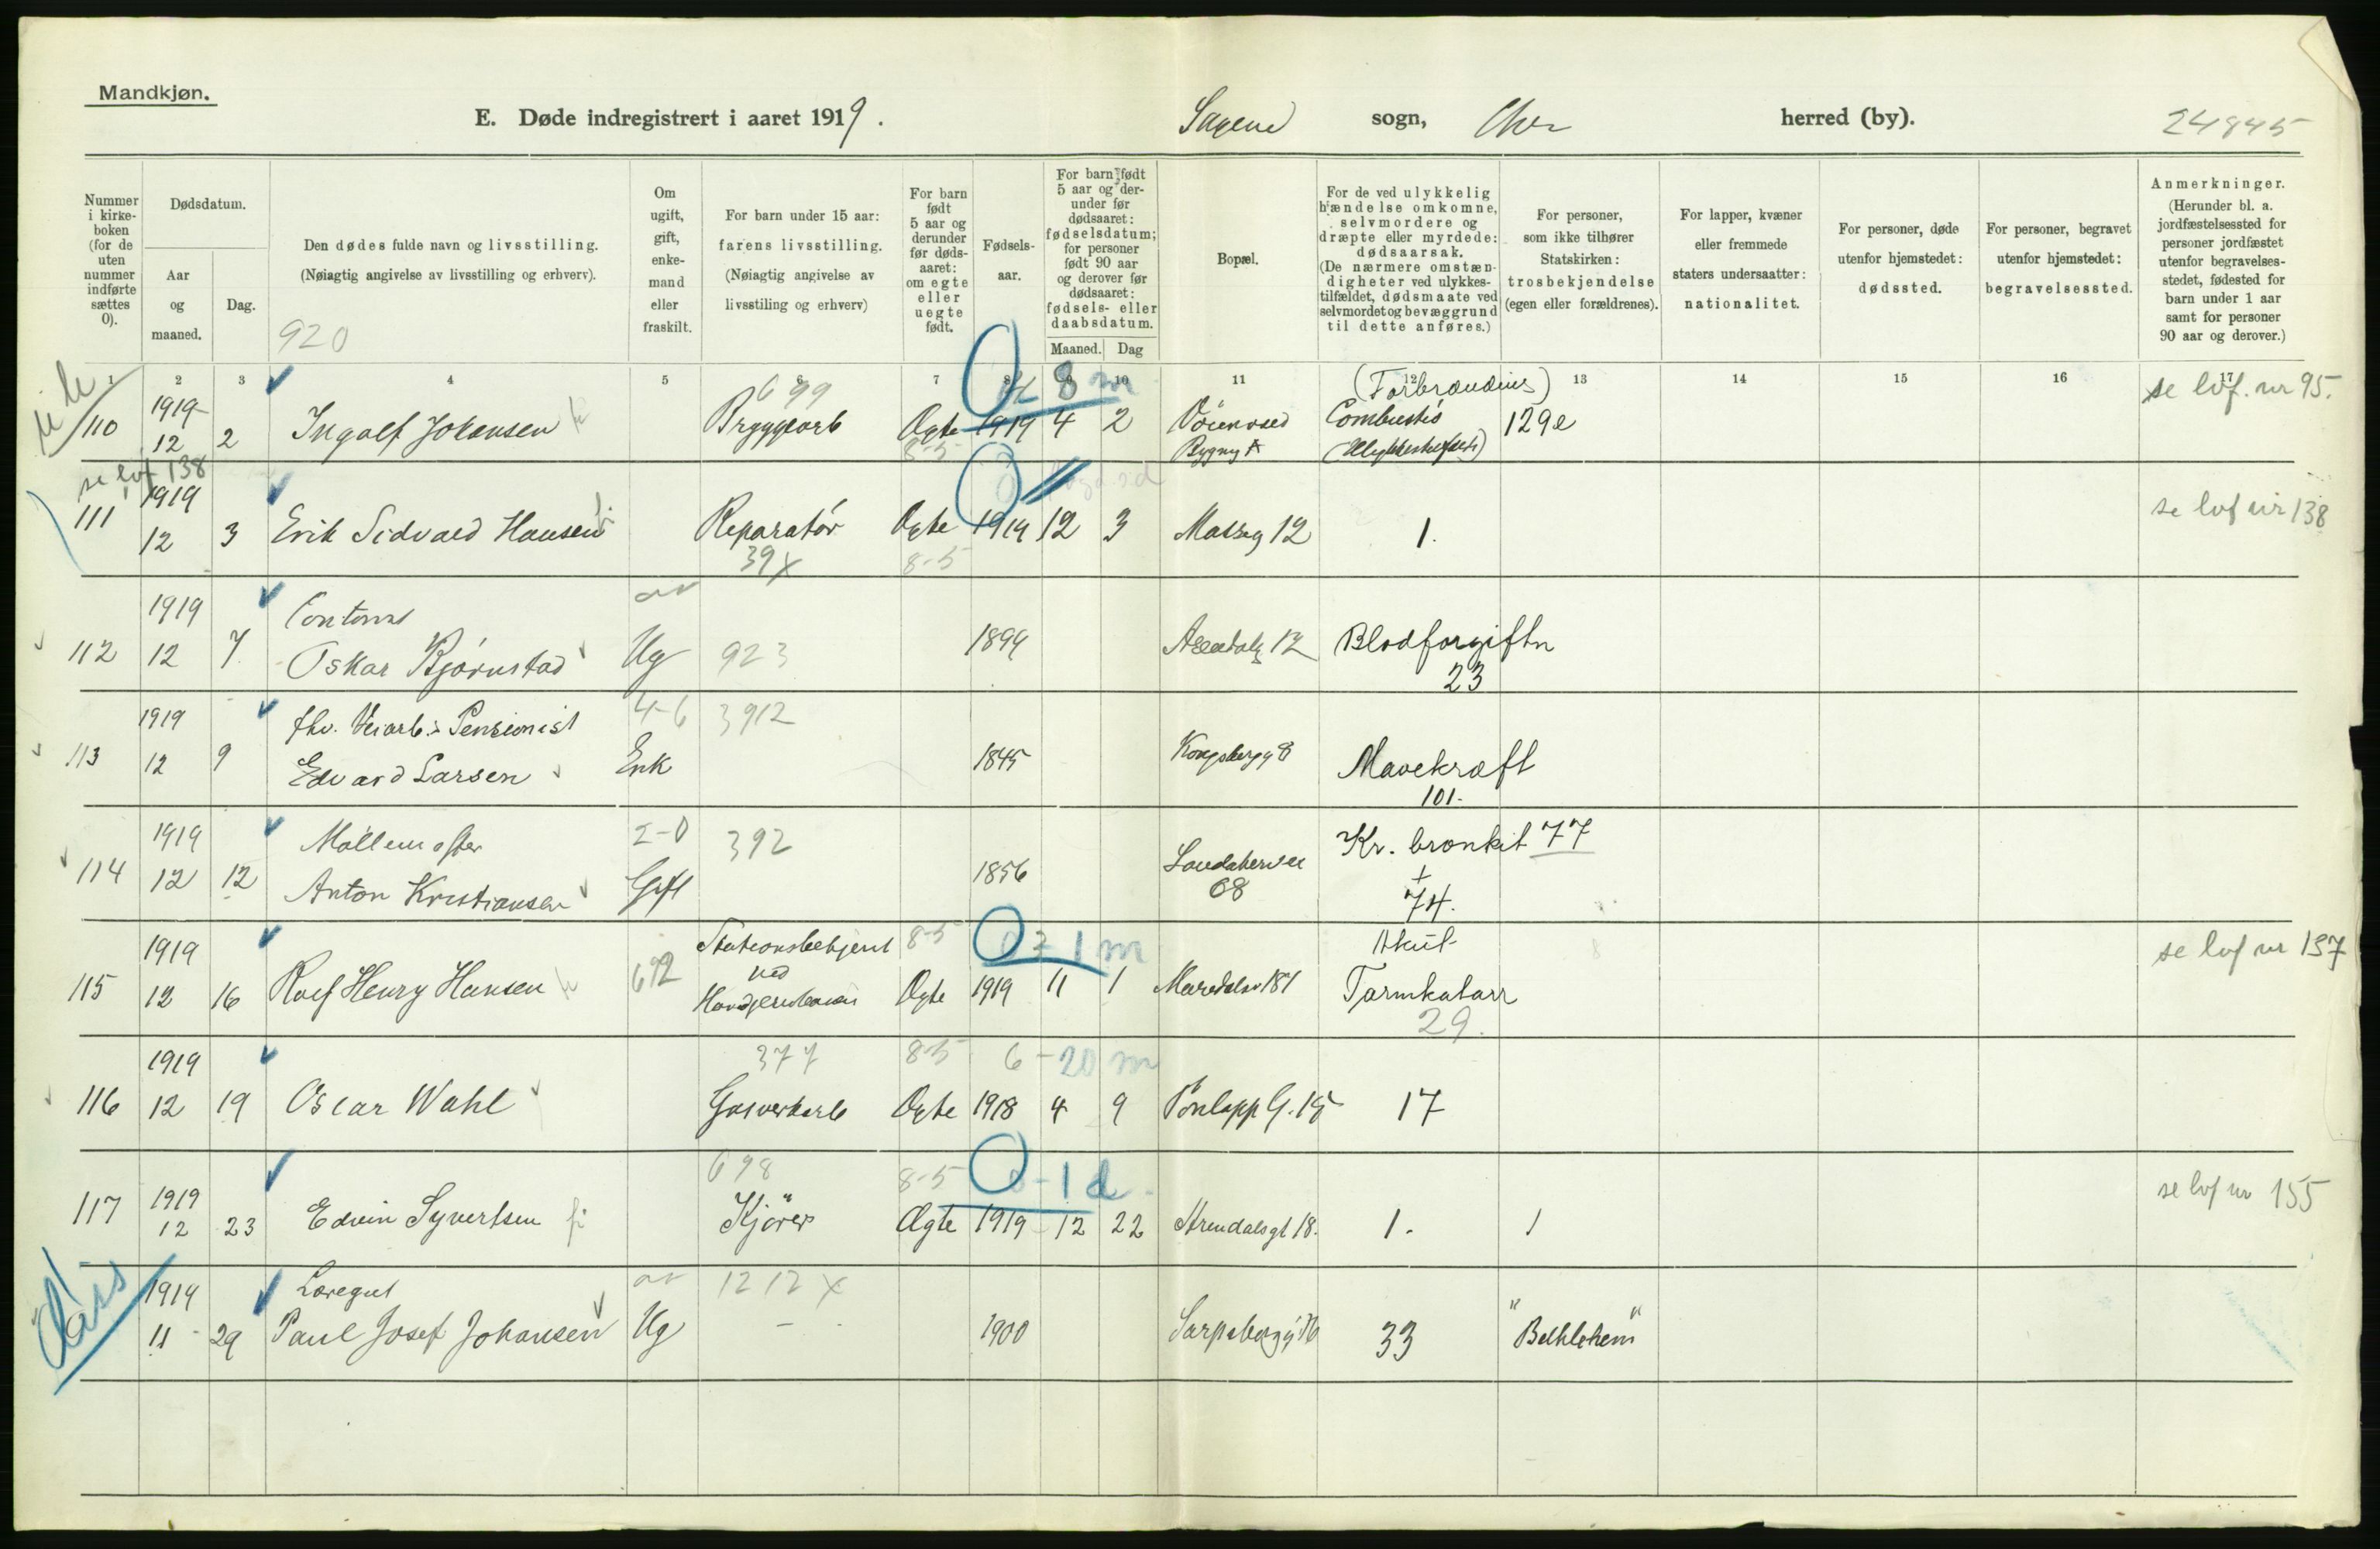 Mandkjøn.
E. Døde indregistrert i aaret 1919.
Sagene sogn, Chra herred (by).
24845
Nummer i kirkeboken (for de uten nummer indførte sættes 0).
Dødsdatum.
Aar og maaned.
Dag.
Den dødes fulde navn og livsstilling.
(Nøiagtig angivelse av livsstilling og erhverv).
920
Om ugift, gift, enkemand eller fraskilt.
For barn under 15 aar:
farens livsstilling.
(Nøiagtig angivelse av livsstiling og erhverv)
For barn født 5 aar og derunder før dødsaaret: om egte eller uegte født.
Fødselsaar.
For barn født 5 aar og derunder før dødsaaret: fødselsdatum; for personer født 90 aar og derover før dødsaaret: fødsels- eller daabsdatum.
Maaned. Dag
Bopæl.
For de ved ulykkelig hændelse omkomne, selvmordere og dræpte eller myrdede: dødsaarsak.
(De nærmere omstændigheter ved ulykkestilfældet, dødsmaate ved selvmordet og bevæggrund til dette anføres.)
For personer, som ikke tilhører Statskirken: trosbekjendelse (egen eller forældrenes).
For lapper, kvæner eller fremmede staters undersaatter: nationalitet.
For personer, døde utenfor hjemstedet: dødssted.
For personer, begravet utenfor hjemstedet: begravelsessted.
Anmerkninger.
(Herunder bl. a. jordfæstelsessted for personer jordfæstet utenfor begravelsesstedet, fødested for barn under 1 aar samt for personer 90 aar og derover.)
1 2 3 4 5 6 7 8 9 10 11 12 13 14 15 16 17
110 1919 12 2 Ingolf Johansen 699 Bryggearb Ægte 8-5 1919 4 2 8 m (Forbrænding) Combustio 129e se lvf. nr 95.
se lvf 138
111 1919 12 3 Erik Sidvald Hansen Reparatør 39x Ægte 8-5 1919 12 3 Massg 12 1. se lvf nr 138
112 1919 12 7 Oskar Bjørnstad Ug 923 1899 Arendalg 12 Blodforgiftn 23
113 1919 12 9 fhv. Veiarb. Pensionist Edvard Larsen 4-6 Enk 3912 1845 Kongsbergg 8 Mavekræft 101.
114 1919 12 12 Møllemester Anton Kristiansen 2-0 Gift 392 1856 68 Kr. bronkit 77 + 74.
115 1919 12 16 Rolf Henry Hansen 692 Stationsbetjent ved 8-5 Ægte 1919 11 1 1 m Maridalsv 181 Akut Tarmkatarr 29. se lvf nr 137
116 1919 12 19 Oscar Wahl 377 Gasverkarb 8-5 Ægte 6-20 m 1918 4 9 17
117 1919 12 23 Edvin Syvertsen 698 Kjører 8-5 Ægte 0-1 d 1919 12 22 Arendalsgt 18. 1. 1 se lvf nr 155
1919 11 29 Læregut Paul Josef Johansen Ug 1212 x 1900 33 "Bethlehem"